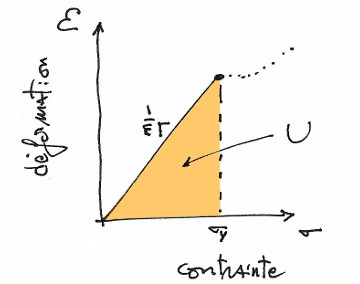 ε
déformation
U
σy
σ
contrainte